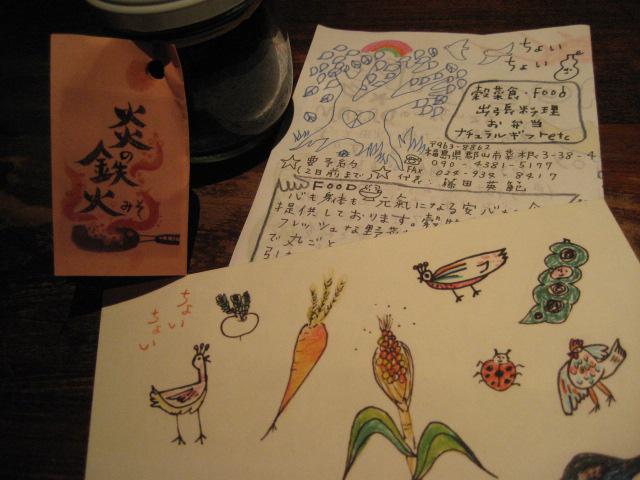 炎の
鉄
火みそ
ちょい
ちょい
穀菜食・Food
出張料理
お弁当
ナチュラルギフトetc
〒963-8862
福島県郡山市菜根3-38-4
☎090-4381-5177
FAX 024-934-8417
☆要予約☆
(2日前まで)
代表
FOOD
心も身体も元氣になる安
提供しております。穀
フレッシュな野菜
で丸ごと
ちょい
ちょい